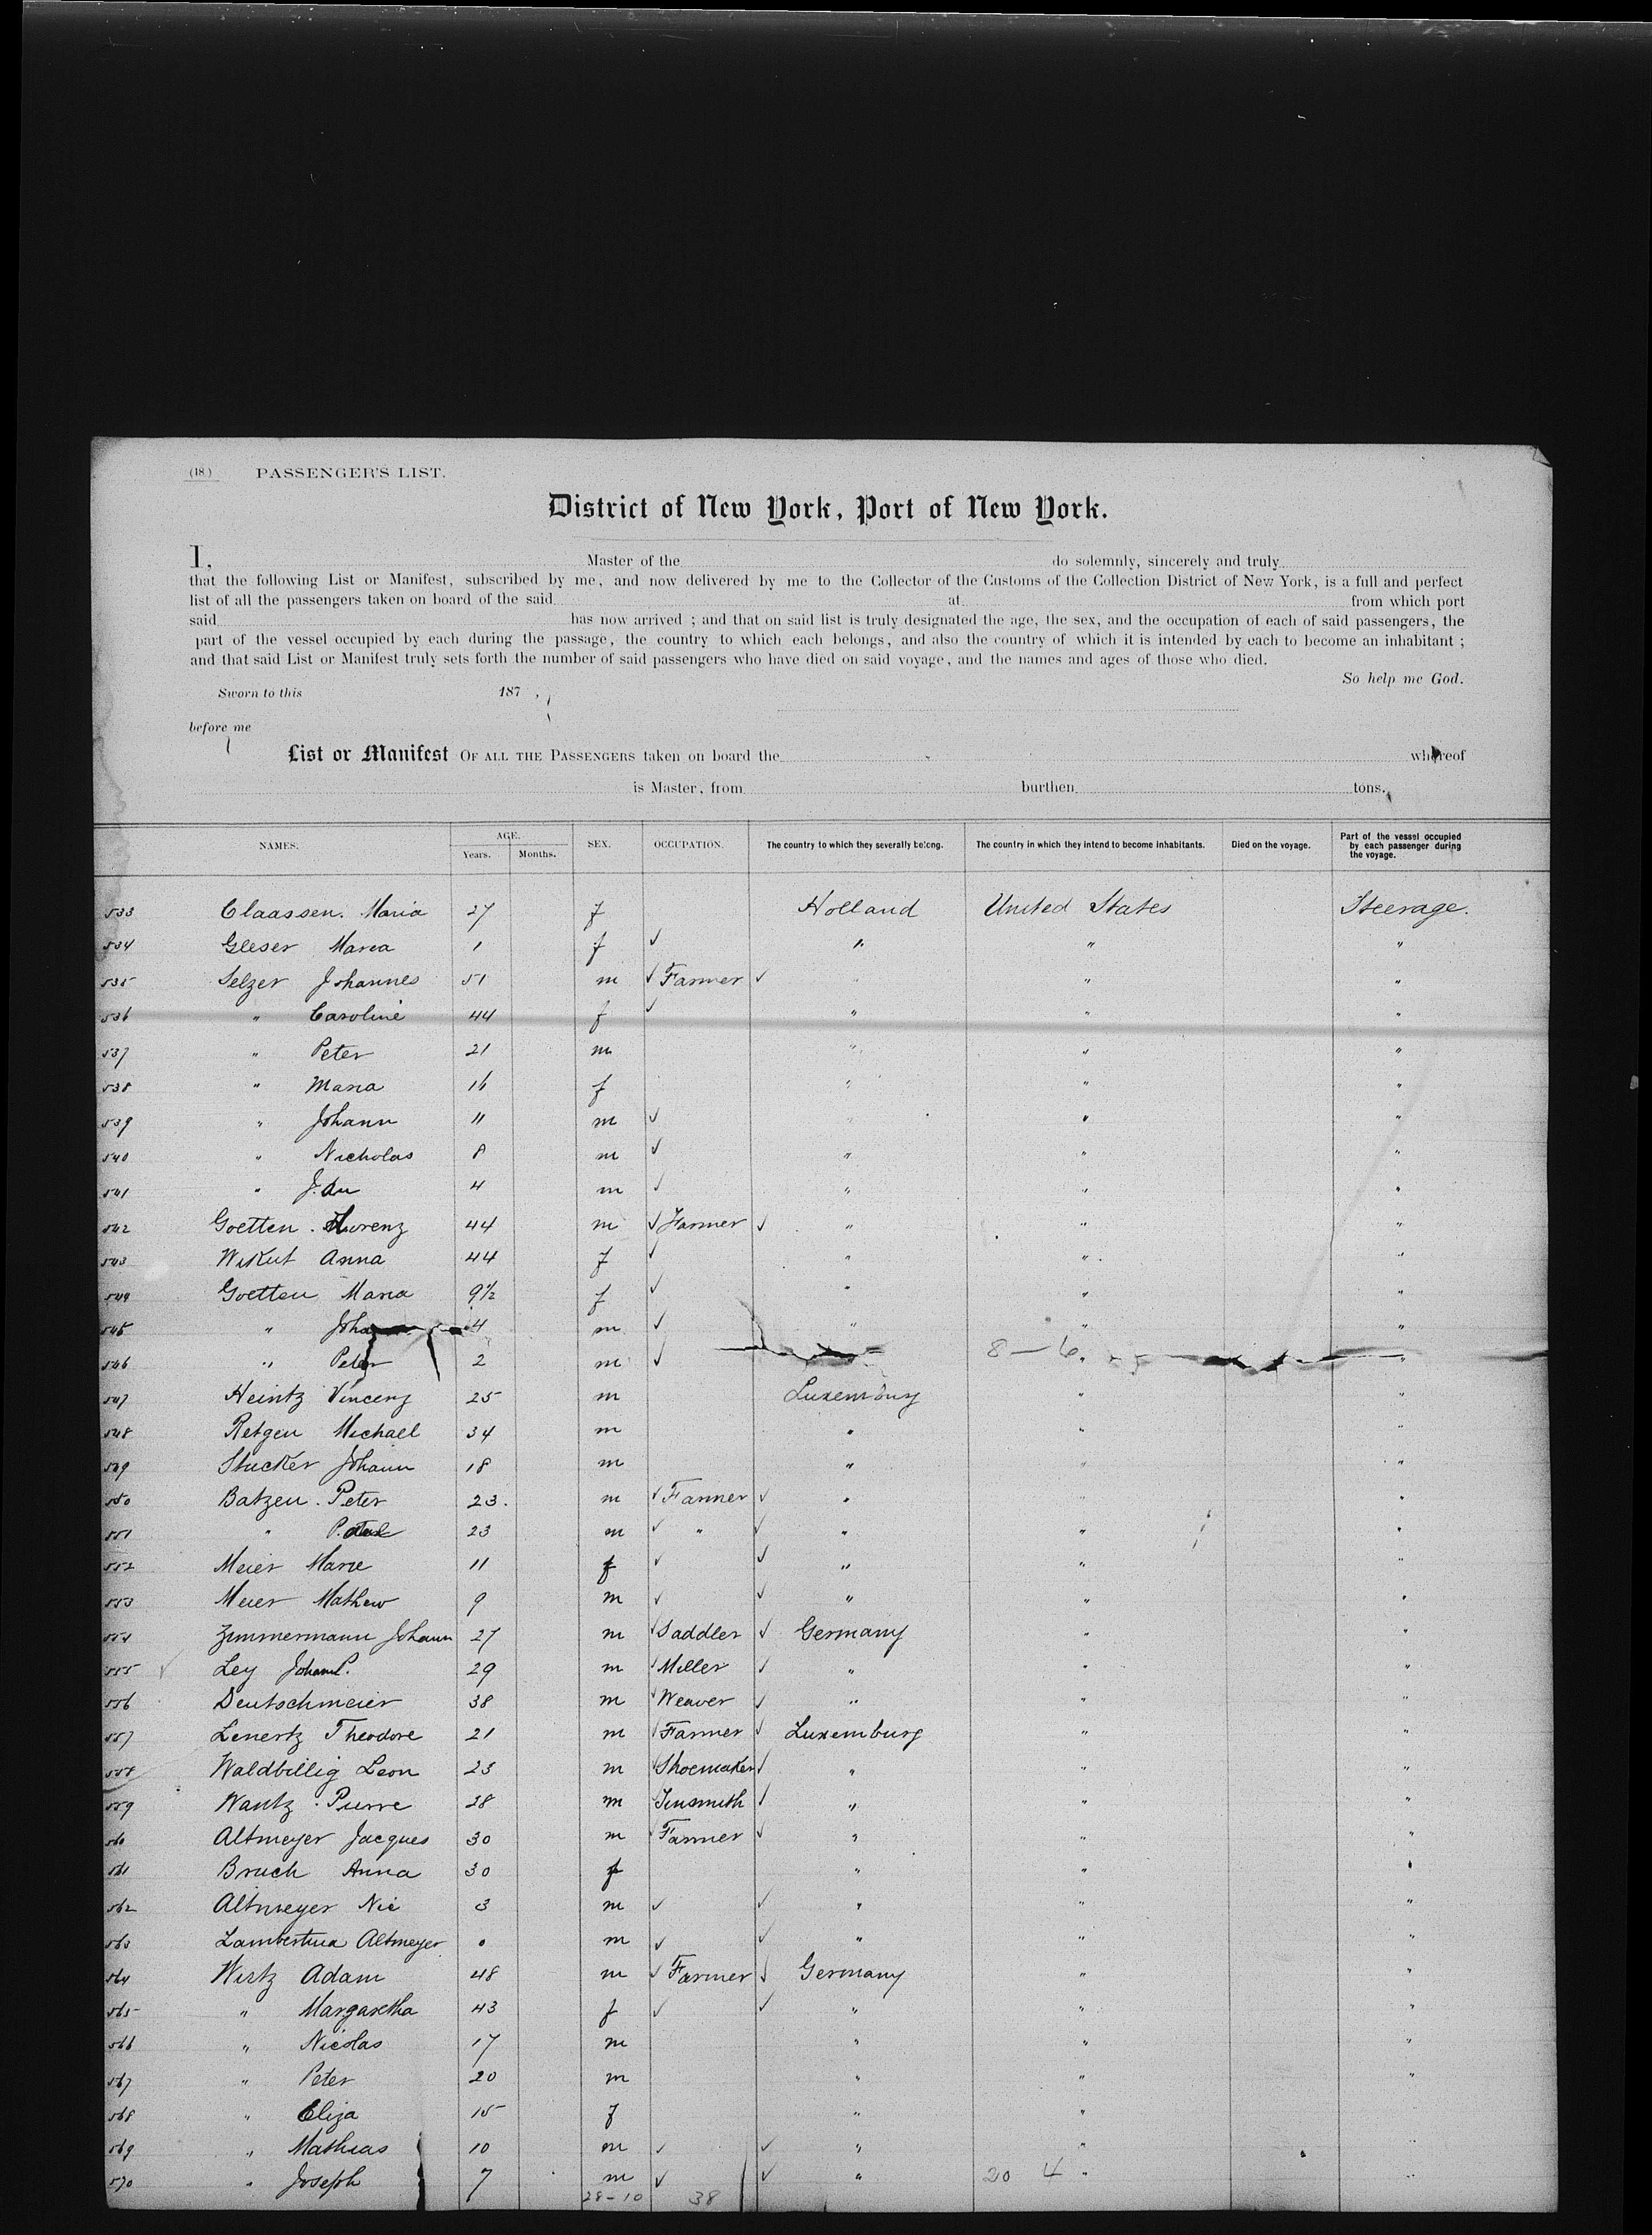 (18) PASSENGER'S LIST.
District of New York, Port of New York.
I, Master of the do solemnly, sincerely and truly
that the following List or Manifest, subscribed by me, and now delivered by me to the Collector of the Customs of the Collection District of New York, is a full and perfect
list of all the passengers taken on board of the said at from which port
said has now arrived ; and that on said list is truly designated the age, the sex, and the occupation of each of said passengers, the
part of the vessel occupied by each during the passage, the country to which each belongs, and also the country of which it is intended by each to become an inhabitant ;
and that said List or Manifest truly sets forth the number of said passengers who have died on said voyage, and the names and ages of those who died.
So help me God.
Sworn to this 187 ,
before me
List or Manifest OF ALL THE PASSENGERS taken on board the whereof
is Master, from burthen tons.
NAMES. AGE. Years. Months. SEX. OCCUPATION. The country to which they severally belong. The country in which they intend to become inhabitants. Died on the voyage. Part of the vessel occupied by each passenger during the voyage.
533 Claassen. Maria 27 f Holland United States Steerage.
534 Gleser Maria 1 f ✓ " " "
535 Selzer Johannes 51 m ✓ Farmer ✓ " " "
536 " Caroline 44 f ✓ " " "
537 " Peter 21 m " " "
538 " Maria 16 f " " "
539 " Johann 11 m ✓ " " "
540 " Nicholas 8 m ✓ " " "
541 " 4 m ✓ " " "
542 Goetten. 44 m ✓ Farmer ✓ " " "
543 Wikut Anna 44 f ✓ " " "
544 Goetten Maria 9½ f ✓ " " "
545 " 4 m ✓ " " "
546 " Peter 2 m ✓ 8 – 6 " "
547 Heintz Vincenz 25 m Luxemburg " "
548 Retgen Michael 34 m " " "
549 Stucker Johann 18 m " " "
550 Batzen. Peter 23. m ✓ Farmer ✓ " " "
551 " 23 m ✓ " ✓ " " "
552 Meier Marie 11 f ✓ ✓ " " "
553 Meier Mathew 9 m ✓ ✓ " " "
554 Zimmermann Johann 27 m ✓ Saddler ✓ Germany " "
555 ✓ Ley Johann P. 29 m ✓ Miller ✓ " " "
556 Deutschmeier 38 m ✓ Weaver ✓ " " "
557 Lenertz Theodore 21 m ✓ Farmer ✓ Luxemburg " "
558 Waldbillig Leon 23 m ✓ Shoemaker ✓ " " "
559 Wantz. Pierre 28 m ✓ Tinsmith ✓ " " "
560 Altmeyer Jacques 30 m ✓ Farmer ✓ " " "
561 Bruch Anna 30 f " " "
562 Altmeyer Nic 3 m ✓ ✓ " " "
563 Lambertina Altmeyer 0 m ✓ ✓ " " "
564 Wirtz Adam 48 m ✓ Farmer ✓ Germany " "
565 " Margaretha 43 f ✓ ✓ " " "
566 " Nicolas 17 m " " "
567 " Peter 20 m " " "
568 " Eliza 15 f " "
569 " Mathias 10 m ✓ ✓ " " "
570 " Joseph 7 m ✓ ✓ " 20 4 " "
28-10 38